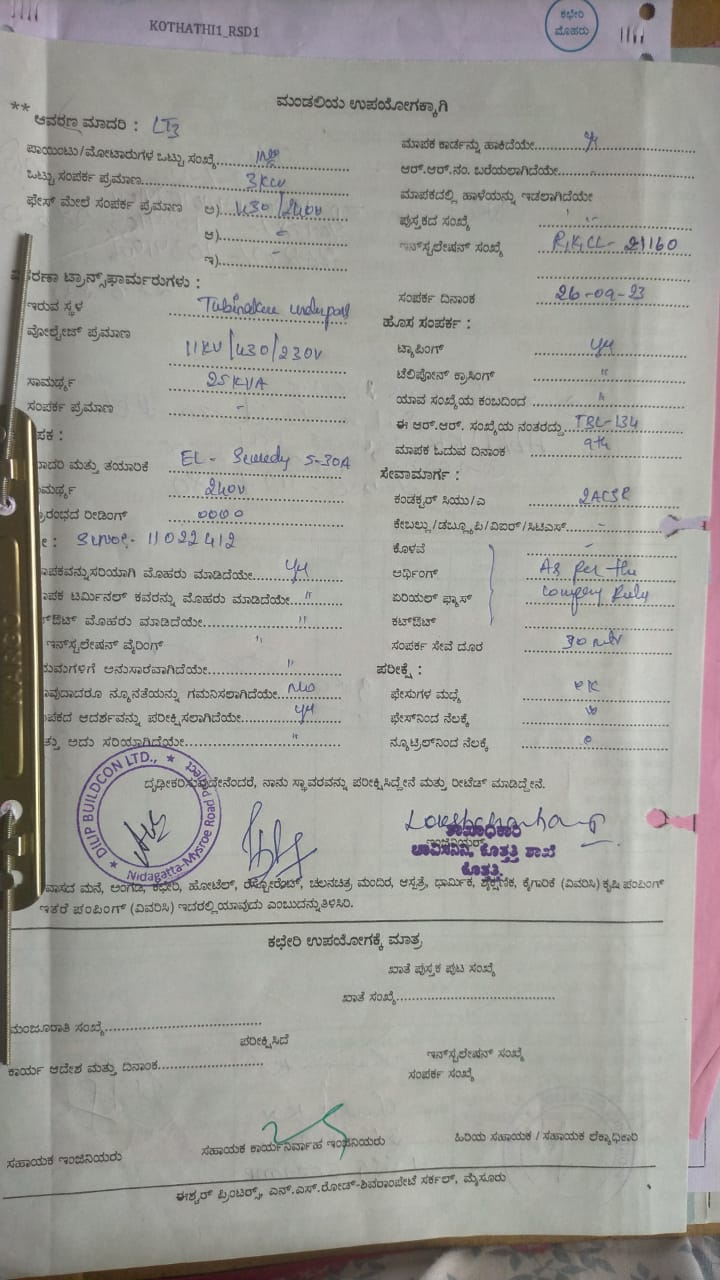 KOTHATHI1_RSD1
ಕಛೇರಿ
ಮೊಹರು
ಮಂಡಲಿಯ ಉಪಯೋಗಕ್ಕಾಗಿ
** ಆವರಣ ಮಾದರಿ : LT3
ಪಾಯಿಂಟು/ಮೋಟಾರುಗಳ ಒಟ್ಟು ಸಂಖ್ಯೆ
ಒಟ್ಟು ಸಂಪರ್ಕ ಪ್ರಮಾಣ 3KW
ಫೇಸ್ ಮೇಲೆ ಸಂಪರ್ಕ ಪ್ರಮಾಣ ಅ) 430/240V
ಆ) -
ಇ) -
ಟ್ರಾನ್ಸ್‌ಫಾರ್ಮರುಗಳು :
ಇರುವ ಸ್ಥಳ Tubinakere underpass
ವೋಲ್ಟೇಜ್ ಪ್ರಮಾಣ
11KV/430/230V
ಸಾಮರ್ಥ್ಯ 25KVA
ಸಂಪರ್ಕ ಪ್ರಮಾಣ -
ಪಕ :
ಮಾದರಿ ಮತ್ತು ತಯಾರಿಕೆ 5-30A
ಮರ್ಥ್ಯ 240V
ರಂಭದ ರೀಡಿಂಗ್ 0000
11022412
ಪಕವನ್ನುಸರಿಯಾಗಿ ಮೊಹರು ಮಾಡಿದೆಯೇ yes
ಪಕ ಟರ್ಮಿನಲ್ ಕವರನ್ನು ಮೊಹರು ಮಾಡಿದೆಯೇ "
ಔಟ್ ಮೊಹರು ಮಾಡಿದೆಯೇ "
ಇನ್‌ಸ್ಟಲೇಷನ್ ವೈರಿಂಗ್ "
ಯಮಗಳಿಗೆ ಅನುಸಾರವಾಗಿದೆಯೇ "
ವುದಾದರೂ ನ್ಯೂನತೆಯನ್ನು ಗಮನಿಸಲಾಗಿದೆಯೇ No
ಪಕದ ಆದರ್ಶವನ್ನು ಪರೀಕ್ಷಿಸಲಾಗಿದೆಯೇ yes
ತ್ತು ಅದು ಸರಿಯಾಗಿದೆಯೇ "
ಮಾಪಕ ಕಾರ್ಡನ್ನು ಹಾಕಿದೆಯೇ yes
ಆರ್.ಆರ್.ನಂ. ಬರೆಯಲಾಗಿದೆಯೇ "
ಮಾಪಕದಲ್ಲಿ ಹಾಳೆಯನ್ನು ಇಡಲಾಗಿದೆಯೇ
ಪುಸ್ತಕದ ಸಂಖ್ಯೆ "
ಇನ್‌ಸ್ಟಲೇಷನ್ ಸಂಖ್ಯೆ 21160
ಸಂಪರ್ಕ ದಿನಾಂಕ 26-09-23
ಹೊಸ ಸಂಪರ್ಕ :
ಟ್ಯಾಪಿಂಗ್ yes
ಟೆಲಿಪೋನ್ ಕ್ರಾಸಿಂಗ್ "
ಯಾವ ಸಂಖ್ಯೆಯ ಕಂಬದಿಂದ "
ಈ ಆರ್.ಆರ್. ಸಂಖ್ಯೆಯ ನಂತರದ್ದು TBL-134
ಮಾಪಕ ಓದುವ ದಿನಾಂಕ 9th
ಸೇವಾಮಾರ್ಗ :
ಕಂಡಕ್ಟರ್ ಸಿಯು/ಎ 2ACSR
ಕೇಬಲ್ಲು/ಡಬ್ಲ್ಯೂಪಿ/ವಿಐರ್/ಸಿಟಿಎಸ್ -
ಕೊಳವೆ -
ಅರ್ಥಿಂಗ್ As per the
ಏರಿಯಲ್ ಫ್ಯೂಸ್ company Rules
ಕಟ್‌ಔಟ್
ಸಂಪರ್ಕ ಸೇವೆ ದೂರ 30 mtr
ಪರೀಕ್ಷೆ :
ಫೇಸುಗಳ ಮಧ್ಯೆ
ಫೇಸ್‌ನಿಂದ ನೆಲಕ್ಕೆ
ನ್ಯೂಟ್ರಲ್‌ನಿಂದ ನೆಲಕ್ಕೆ
ದೃಢೀಕರಿಸುವುದೇನೆಂದರೆ, ನಾನು ಸ್ಥಾವರವನ್ನು ಪರೀಕ್ಷಿಸಿದ್ದೇನೆ ಮತ್ತು ರೀಟೆಡ್ ಮಾಡಿದ್ದೇನೆ.
DILIP BUILDCON LTD.,
Nidagatta-Mysroe Road project
ಶಾಖಾಧಿಕಾರಿ
ಚಾವಿಸನಿನಿ, ಕೊತ್ತತ್ತಿ ಶಾಖೆ
ಕೊತ್ತತ್ತಿ
ವಾಸದ ಮನೆ, ಅಂಗಡಿ, ಕಛೇರಿ, ಹೋಟೆಲ್, ರೆಸ್ಟೋರೆಂಟ್, ಚಲನಚಿತ್ರ ಮಂದಿರ, ಆಸ್ಪತ್ರೆ, ಧಾರ್ಮಿಕ, ಶೈಕ್ಷಣಿಕ, ಕೈಗಾರಿಕೆ (ವಿವರಿಸಿ) ಕೃಷಿ ಪಂಪಿಂಗ್
ಇತರೆ ಪಂಪಿಂಗ್ (ವಿವರಿಸಿ) ಇದರಲ್ಲಿಯಾವುದು ಎಂಬುದನ್ನುತಿಳಿಸಿರಿ.
ಕಛೇರಿ ಉಪಯೋಗಕ್ಕೆ ಮಾತ್ರ
ಖಾತೆ ಪುಸ್ತಕ ಪುಟ ಸಂಖ್ಯೆ
ಖಾತೆ ಸಂಖ್ಯೆ
ಮಂಜೂರಾತಿ ಸಂಖ್ಯೆ
ಪರೀಕ್ಷಿಸಿದೆ
ಇನ್‌ಸ್ಟಲೇಷನ್ ಸಂಖ್ಯೆ
ಕಾರ್ಯ ಆದೇಶ ಮತ್ತು ದಿನಾಂಕ
ಸಂಪರ್ಕ ಸಂಖ್ಯೆ
ಸಹಾಯಕ ಇಂಜಿನಿಯರು ಸಹಾಯಕ ಕಾರ್ಯನಿರ್ವಾಹ ಇಂಜಿನಿಯರು ಹಿರಿಯ ಸಹಾಯಕ / ಸಹಾಯಕ ಲೆಕ್ಕಾಧಿಕಾರಿ
ಈಶ್ವರ್ ಪ್ರಿಂಟರ್ಸ್, ಎನ್.ಎಸ್.ರೋಡ್-ಶಿವರಾಂಪೇಟೆ ಸರ್ಕಲ್, ಮೈಸೂರು